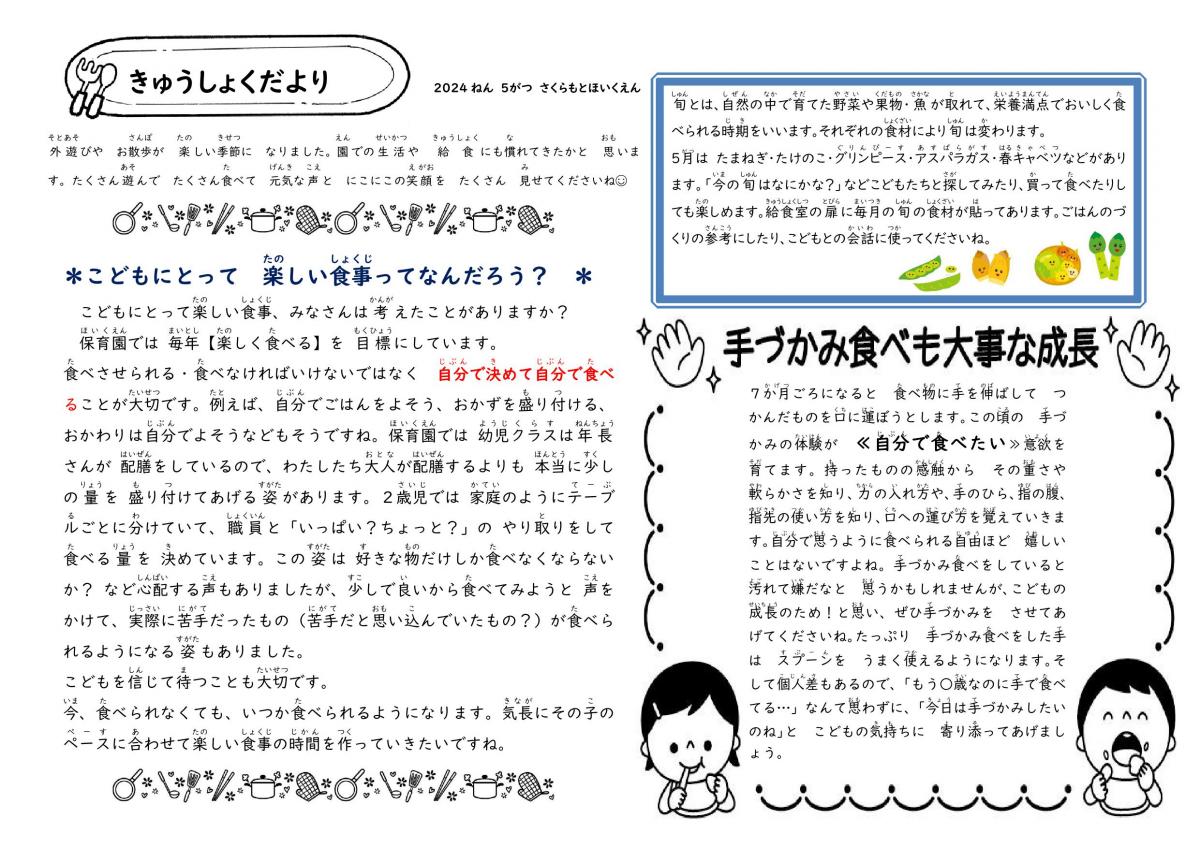 きゅうしょくだより
2024ねん 5がつ さくらもとほいくえん
外遊びや お散歩が 楽しい季節に なりました。園での生活や 給食にも慣れてきたかと 思いま
す。たくさん遊んで たくさん食べて 元気な声と にこにこの笑顔を たくさん 見せてくださいね☺
＊こどもにとって 楽しい食事ってなんだろう？ ＊
こどもにとって楽しい食事、みなさんは考えたことがありますか？
保育園では 毎年【楽しく食べる】を 目標にしています。
食べさせられる・食べなければいけないではなく 自分で決めて自分で食べ
ることが大切です。例えば、自分でごはんをよそう、おかずを盛り付ける、
おかわりは自分でよそうなどもそうですね。保育園では 幼児クラスは年長
さんが 配膳をしているので、わたしたち大人が配膳するよりも 本当に少し
の量を 盛り付けてあげる姿があります。２歳児では 家庭のようにテーブ
ルごとに分けていて、職員と「いっぱい？ちょっと？」の やり取りをして
食べる量を 決めています。この姿は 好きな物だけしか食べなくならない
か？ など心配する声もありましたが、少しで良いから食べてみようと 声を
かけて、実際に苦手だったもの（苦手だと思い込んでいたもの？）が食べら
れるようになる姿もありました。
こどもを信じて待つことも大切です。
今、食べられなくても、いつか食べられるようになります。気長にその子の
ペースに合わせて楽しい食事の時間を作っていきたいですね。
旬とは、自然の中で育てた野菜や果物・魚が取れて、栄養満点でおいしく食
べられる時期をいいます。それぞれの食材により旬は変わります。
5月は たまねぎ・たけのこ・グリンピース・アスパラガス・春キャベツなどがあり
ます。「今の旬はなにかな？」などこどもたちと探してみたり、買って食べたりし
ても楽しめます。給食室の扉に毎月の旬の食材が貼ってあります。ごはんのづ
くりの参考にしたり、こどもとの会話に使ってくださいね。
手づかみ食べも大事な成長
７か月ごろになると 食べ物に手を伸ばして つ
かんだものを口に運ぼうとします。この頃の 手づ
かみの体験が ≪自分で食べたい≫意欲を
育てます。持ったものの感触から その重さや
軟らかさを知り、力の入れ方や、手のひら、指の腹、
指先の使い方を知り、口への運び方を覚えていきま
す。自分で思うように食べられる自由ほど 嬉しい
ことはないですよね。手づかみ食べをしていると
汚れて嫌だなと 思うかもしれませんが、こどもの
成長のため！と思い、ぜひ手づかみを させてあ
げてくださいね。たっぷり 手づかみ食べをした手
は スプーンを うまく使えるようになります。そ
して個人差もあるので、「もう○歳なのに手で食べ
てる…」なんて思わずに、「今日は手づかみしたい
のね」と こどもの気持ちに 寄り添ってあげまし
ょう。